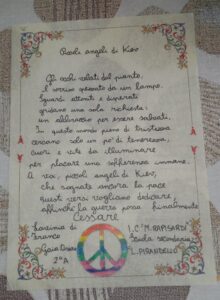 Piccoli angeli di Kiev
Gli occhi velati dal pianto,
il sorriso spezzato da un lampo.
Sguardi attenti e disperati
gridano una sola richiesta:
un abbraccio per essere salvati.
In questo mondo pieno di tristezza
cercano solo un po' di tenerezza,
cuori e vite da illuminare
per placare una sofferenza immane.
A voi, piccoli angeli di Kiev,
che sognate ancora la pace
questi versi vogliamo dedicare,
affinché la guerra possa finalmente
cessare
Gaia
2ªA
I.C. "M. RAPISARDI
Scuola secondaria
L. PIRANDELLO